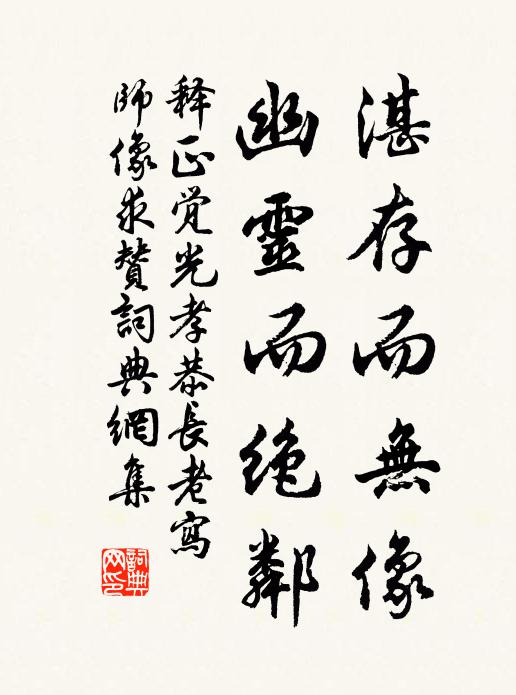 湛存而無像
幽靈而绝鄰
释正覚光孝恭長老寫
師像求賛詞典網集
詞典
网印